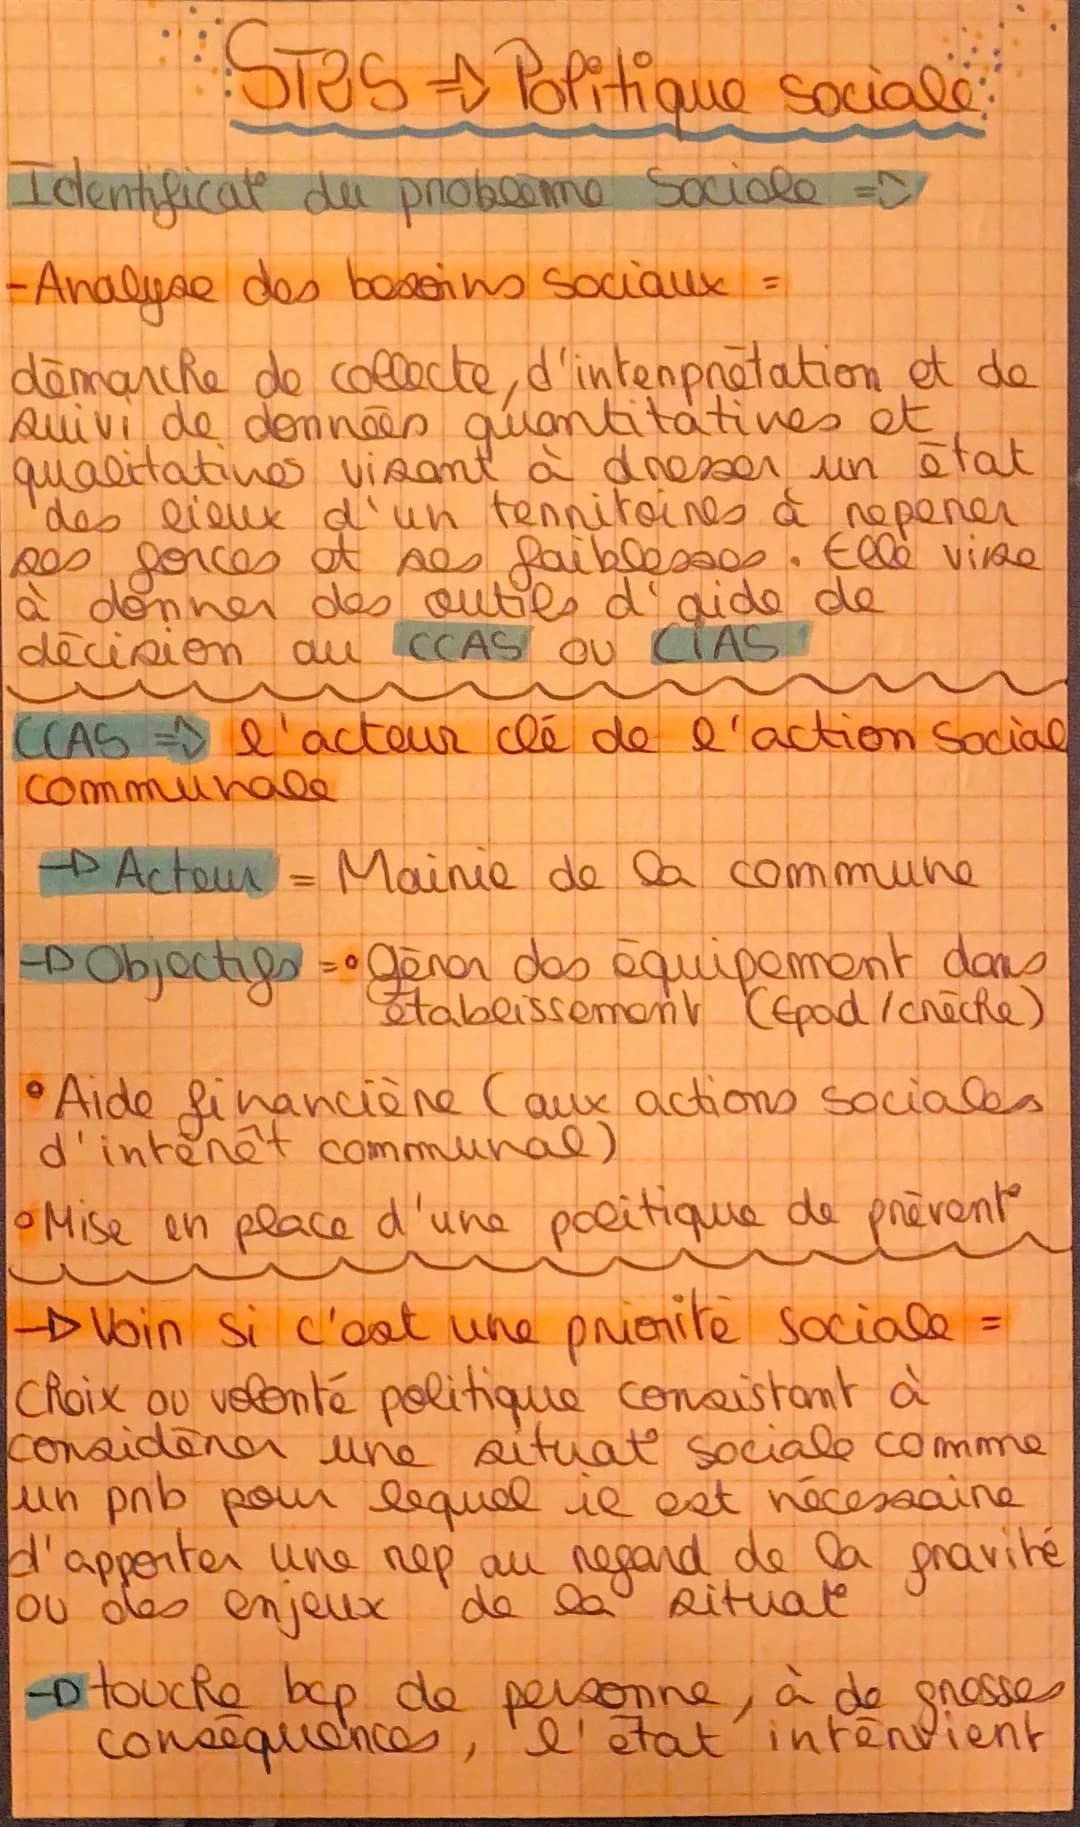 STSS => Politique sociale
Identificat° du problème Sociale =>
- Analyse des besoins sociaux =
démarche de collecte, d'interprétation et de
suivi de données quantitatives et
qualitatives visant à dresser un état
des lieux d'un territoires à reperer
ses forces et ses faiblesses. Elle vise
à donner des outils d'aide de
décision au CCAS ou CIAS
CCAS => l'acteur clé de l'action Social
communale
-> Acteur = Mairie de la commune
-> Objectifs = • gérer des équipement dans
établissement (Epad / crèche)
• Aide financière (aux actions sociales
d'intérêt communal)
• Mise en place d'une politique de prévent°
-> Voir si c'est une priorité sociale =
Choix ou volonté politique consistant à
considérer une situat° sociale comme
un prb pour lequel il est nécessaire
d'apporter une rep au regard de la gravité
ou des enjeux de la situat°
-> touche bcp de personne, à de grosses
conséquences, l'état intervient